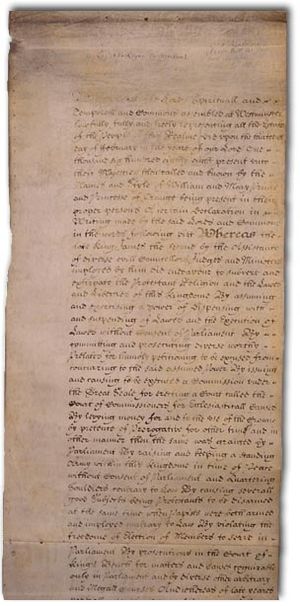 Lords Spirituall and
Temporall and Commons assembled at Westminster
lawfully fully and freely representing all the
of the People of this Realme did upon the
day of February in the yeare of our Lord One
thousand six hundred eighty eight present unto
their Majesties then called and known by the
Names and Stile of William and Mary Prince
and Princesse of Orange being present in their
proper persons a certain Declaration in
Writeing made by the said Lords and Commons
in the words following viz Whereas the
late King James the second by the assistance
of diverse evill Councellors Judges and Ministers
imployed by him did endeavour to subvert and
extirpate the Protestant Religion and the Lawes
and Liberties of this Kingdome By assuming
and exercising a power of Dispensing with
and suspending of Lawes and the Execution of
Lawes without consent of Parliament By
committing and prosecuting diverse worthy
Prelates for humbly petitioning to be excused from
concurring to the said assumed power By issuing
and causing to be executed a Commission under
the Great Seale for erecting a Court called the
Court of Commissioners for Ecclesiasticall Causes
By levying money for and to the use of the Crowne
by pretence of Prerogative for other time and in
other manner then the same was granted by
Parliament By raising and keeping a standing
Army within this Kingdome in time of Peace
without Consent of Parliament and Quartering
Souldiers contrary to Law By causing severall
good Subjects being Protestants to be disarmed
at the same time when Papists were both armed
and imployed contrary to Law By violating the
freedome of Election of Members to serve in
Parliament By prosecutions in the Court of
Kings Bench for matters and causes cognizable
only in Parliament and by diverse other arbitrary
and illegall courses And whereas of late yeares